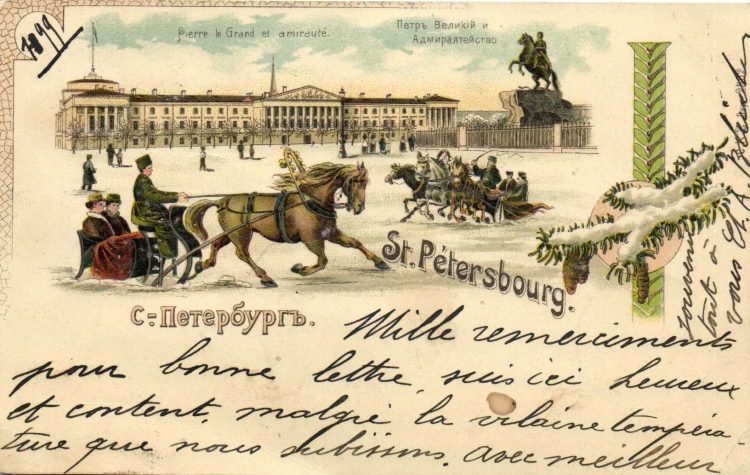 1899
Pierre le Grand et amirauté.
Петръ Великій и
Адмиралтейство
St. Pétersbourg.
С:-Петербургъ.
Mille remerciments
pour bonne lettre, suis ici heureux
et content, malgré la vilaine tempéra-
ture que nous subissons. Avec meilleur
souvenir
tout à
vous Ch. A.